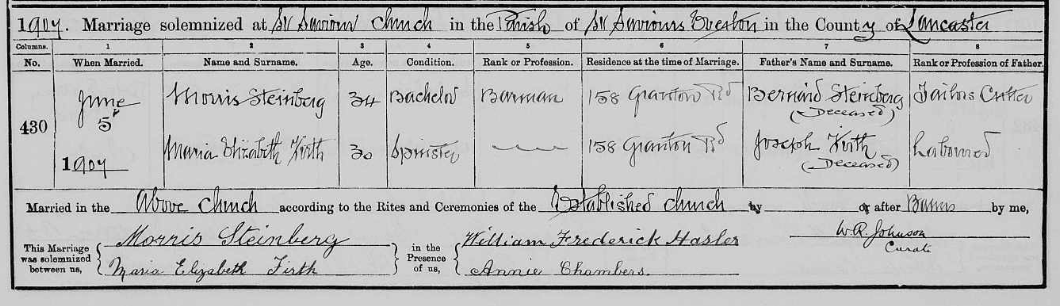 1907. Marriage solemnized at St Saviours Church in the Parish of St Saviours Everton in the County of Lancaster
Columns. 1 2 3 4 5 6 7 8
No. When Married. Name and Surname. Age. Condition. Rank or Profession. Residence at the time of Marriage. Father's Name and Surname. Rank or Profession of Father.
430 June 5th 1907
Morris Steinberg 34 Bachelor Barman 158 Granton Rd Bernard Steinberg (Deceased) Tailors Cutter
Maria Elizabeth Firth 30 Spinster 158 Granton Rd Joseph Firth (Deceased) Labourer
Married in the Above Church according to the Rites and Ceremonies of the Established Church by or after Banns by me,
This Marriage was solemnized between us,
Morris Steinberg
Maria Elizabeth Firth
in the Presence of us,
William Frederick Hasler
Annie Chambers.
W.R. Johnson
Curate